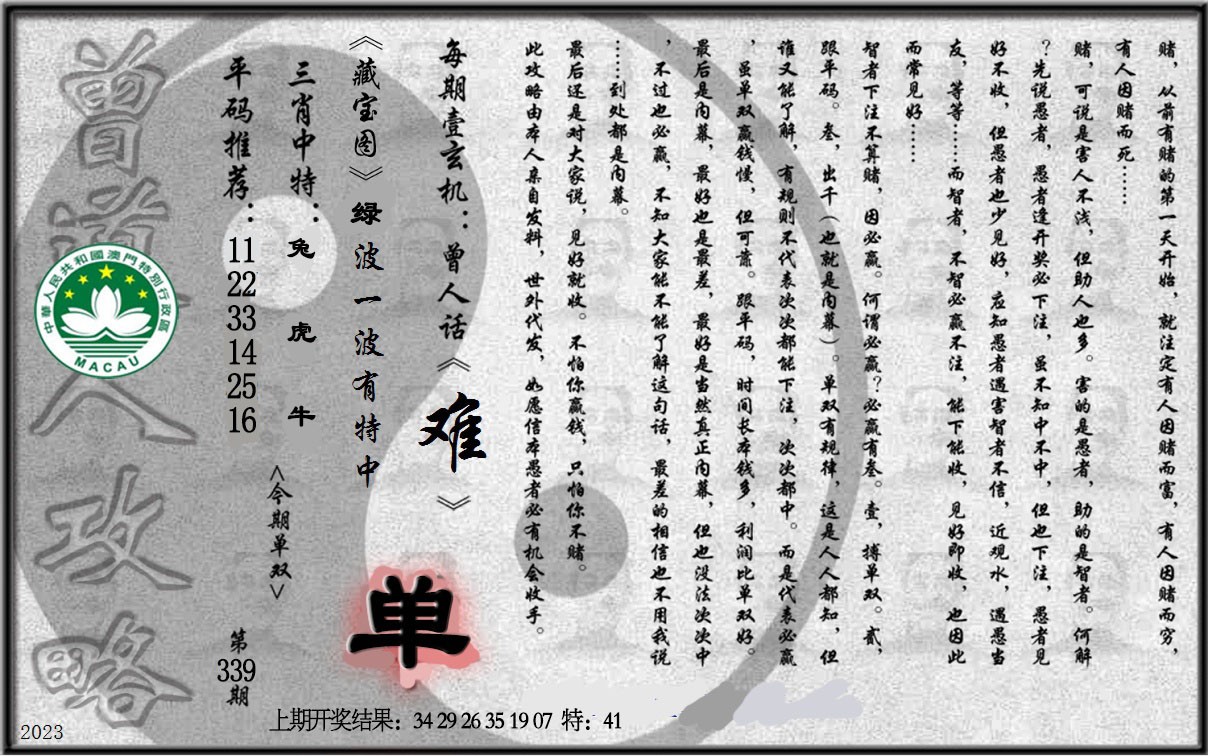 赌，从前有赌的第一天开始，就注定有人因赌而富，有人因赌而穷，
有人因赌而死……
赌，可说是害人不浅，但助人也多。害的是愚者，助的是智者。何解
？先说愚者，愚者逢开奖必下注，虽不知中不中，但也下注，愚者见
好不收，但愚者也少见好，应知愚者遇害智者不信，近观水，遇愚当
友，等等……而智者，不智必赢不注，能下能收，见好即收，也因此
而常见好……
智者下注不算赌，因必赢。何谓必赢？必赢有叁。壹，搏单双。贰，
跟平码。叁，出千（也就是内幕）。单双有规律，这是人人都知，但
谁又能了解，有规则不代表次次都能下注，次次都中。而是代表必赢
，虽单双赢钱慢，但可靠。跟平码，时间长本钱多，利润比单双好。
最后是内幕，最好也是最差，最好是当然真正内幕，但也没法次次中
，不过也必赢，不知大家能不能了解这句话，最差的相信也不用我说
……到处都是内幕。
最后还是对大家说，见好就收。不怕你赢钱，只怕你不赌。
此攻略由本人亲自发料，世外代发，如愿信本愚者必有机会收手。
每期壹玄机：曾人话《难》
《藏宝图》绿波一波有特中
单
三肖中特：兔 虎 牛
<今期单双>
平码推荐：11 22 33 14 25 16
第339期
曾道人攻略
中華人民共和國澳門特別行政區
MACAU
上期开奖结果：34 29 26 35 19 07 特：41
2023